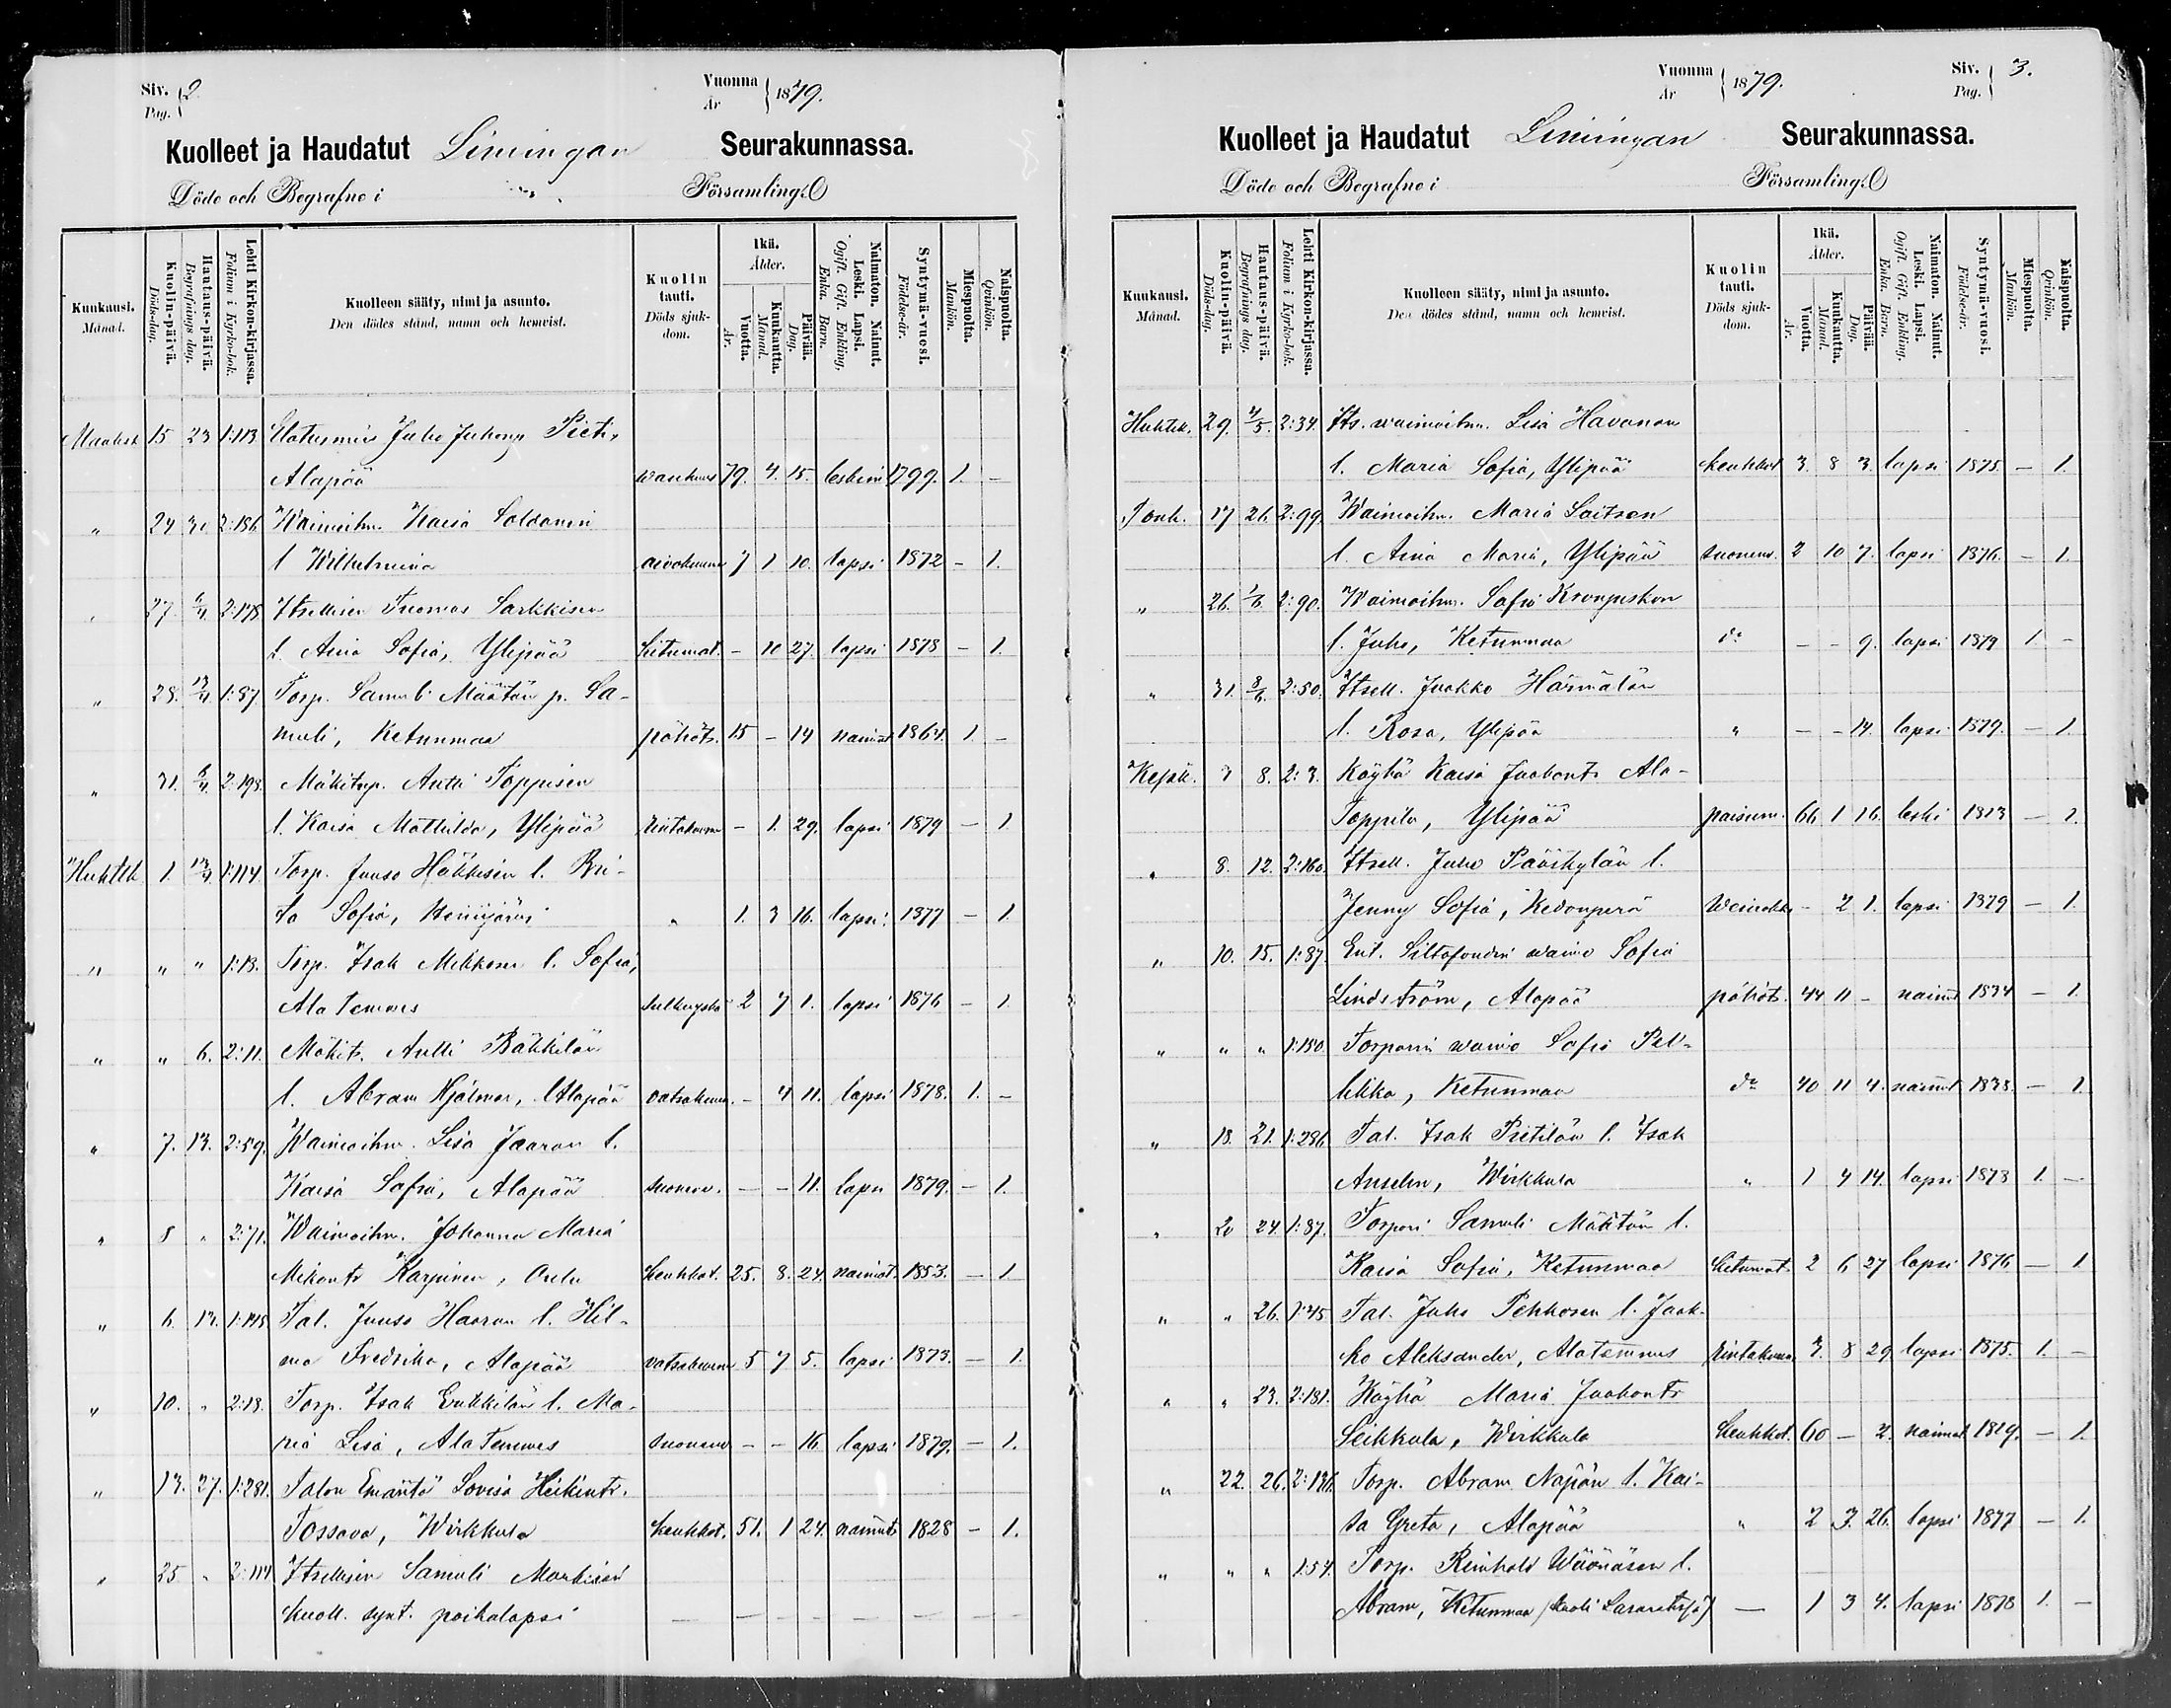 Siv. 2
Pag.
Vuonna 1879.
År
Kuolleet ja Haudatut Limingan Seurakunnassa.
Döde och Begrafne i Församling.
Kuukausi. Månad.
Kuolin-päivä. Döds-dag.
Hautaus-päivä. Begrafnings dag.
Lehti Kirkon-kirjassa. Folium i Kyrko-bok.
Kuolleen sääty, nimi ja asunto.
Den dödes stånd, namn och hemvist.
Kuolin tauti. Döds sjukdom.
Ikä. Ålder.
Vuotta. År.
Kuukautta. Månad.
Päivää. Dag.
Naimaton. Nainut. Leski. Lapsi.
Ogift. Gift. Enkling. Enka. Barn.
Syntymä-vuosi. Födelse-år.
Miespuolta. Mankön.
Naispuolta. Qvinkön.
Maalisk 15 23 1:113 Juho Juhonp. Pieti,
Alapää 79. 4. 15. leskimi 1799. 1. –
„ 24 30. 2:186 Waimoihm. Kaisa Soldanin
l Wilhelmina aivokuume 7 1 10. lapsi 1872 – 1.
27. 6/4 2:178 Itsellisen Tuomas Sarkkisen
l. Aina Sofia, Ylipää hitumat. – 10 27. lapsi 1878 – 1.
„ 28. 13/4 1:87. Torp. Samuli Määtän p. Sa-
muli, Ketunmaa pöhöt. 15 – 14 naimat 1864. 1. –
„ 31. 6/4. 2:198. Mäkitup. Antti Toppisen
l. Kaisa Mathilda, Ylipää rintakuum – 1. 29. lapsi 1879 – 1.
Huhtik 1. 13/4 1:114. Torp. Juuso Häkkisen l. Bri-
ta Sofia, Heinijärvi „ 1. 3 16. lapsi 1877 – 1.
„ „ „ 1:13. Torp. Isak Mikkosen l. Sofia,
Ala Temmes 2 7 1. lapsi 1876 – 1.
„ „ 6. 2:11. Mäkit. Antti Bäkkilän
l. Abram Hjalmar, Alapää vatsakuum. – 4 11. lapsi 1878. 1. –
„ 7. 13. 2:59. Waimoihm. Lisa Jaaran l.
Kaisa Sofia, Alapää suonenv. – – 11. lapsi 1879. – 1.
„ 8 „ 2:71. Waimoihm. Johanna Maria
Mikontr Karpinen, Oulu keuhkot. 25. 8. 24. naimat. 1853. – 1.
„ 6. 13. 1:145 Tal. Juuso Haaran l. Hil-
ma Fredrika, Alapää vatsakuum 5 7 5. lapsi 1873. – 1.
„ 10. „ 2:18. Torp. Isak Erkkilän l. Ma-
ria Lisa, Ala Temmes suonenv – – 16 lapsi 1879. – 1.
„ 13. 27. 1:281. Talon Emäntä Lovisa Heikintr.
Tossava, Wirkkula keuhkot. 51. 1 24. naimut 1828 – 1.
„ 25 „ 2:114 Itsellisen Samuli
kuoll. synt. poikalapsi – – – – – – –
Vuonna 1879.
År
Siv. 3.
Pag.
Kuolleet ja Haudatut Limingan Seurakunnassa.
Döde och Begrafne i Församling.
Kuukausi. Månad.
Kuolin-päivä. Döds-dag.
Hautaus-päivä. Begrafnings dag.
Lehti Kirkon-kirjassa. Folium i Kyrko-bok.
Kuolleen sääty, nimi ja asunto.
Den dödes stånd, namn och hemvist.
Kuolin tauti. Döds sjukdom.
Ikä. Ålder.
Vuotta. År.
Kuukautta. Månad.
Päivää. Dag.
Naimaton. Nainut. Leski. Lapsi.
Ogift. Gift. Enkling. Enka. Barn.
Syntymä-vuosi. Födelse-år.
Miespuolta. Mankön.
Naispuolta. Qvinkön.
Huhtik. 29. 4/5. 2:34. Its. waimoihm. Lisa Havanan
l. Maria Sofia, Ylipää keuhkot 3. 8 3. lapsi 1875 – 1.
Touk. 17 26. 2:99. Waimoihm. Maria Laitsen
l. Aina Maria, Ylipää suonenv. 2 10 7. lapsi 1876. – 1.
„ 26. 1/6. 2:90. Waimoihm. Sofia
l. Juho, Ketunmaa do – – 9. lapsi 1879 1. –
„ 31. 8/6. 2:50. Itsell. Jaakko Härmälän
l. Rosa, Ylipää „ – – 14. lapsi 1879. – 1.
Kesäk. 3 8. 2:3. Köyhä Kaisa Jaakontr Ala-
Toppila, Ylipää paisum. 66 1 16. leski 1813 – 1.
„ 8. 12. 2:160. Itsell. Juho Pääskylän l.
Jenny Sofia, Kedonperä – 2 1. lapsi 1879 – 1.
„ 10. 15. 1:87. Ent. Siltafoudin waimo Sofia
Lindström, Alapää pöhöt. 44 11 – naimut 1834 – 1.
„ „ „ 1:180 Torparin waimo Sofia Pel-
likka, Ketunmaa do 40 11 4. naimut 1838. – 1.
„ 18. 21. 1:286 Tal. Isak Pietilän l. Isak
Anselm, Wirkkula „ 1 4 14. lapsi 1878 1. –
„ 20 24. 1:87. Torpari Samuli Määtän l.
Kaisa Sofia, Ketunmaa hitumat. 2 6 27 lapsi 1876 – 1
„ „ 26. 1:45 Tal. Juho Pehkosen l. Jaak-
ko Aleksander, Alatemmes rintakuum. 3. 8 29 lapsi 1875. 1. –
„ „ 23. 2:181. Köyhä Maria Jaakontr
Leikkula, Wirkkula keuhkot. 60 – 2. naimat 1819. – 1.
„ 22. 26. 2:136. Torp. Abram Näpän l. Kai-
sa Greta, Alapää „ 2 3. 26. lapsi 1877 – 1.
„ „ „ 1:54. Torp. Reinhold Wäänäsen l.
Abram, Ketunmaa – 1 3 4. lapsi 1878 1. –